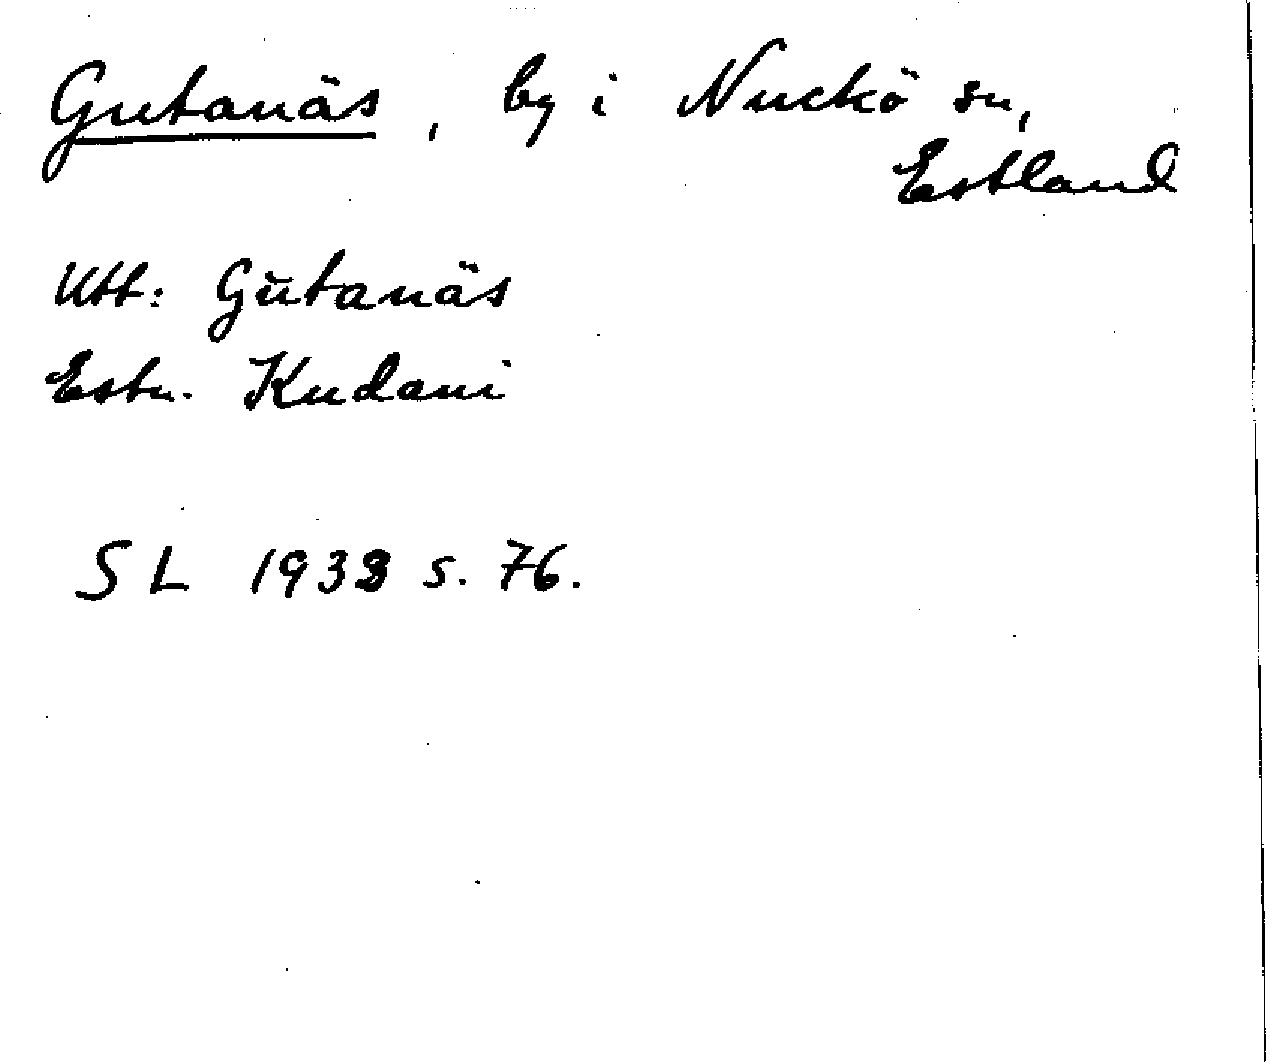 Gutanäs, by i Nuckö sn,
Estland
Utt: Gŭtanäs
Estn. Kudani
SL 1938 s. 76.